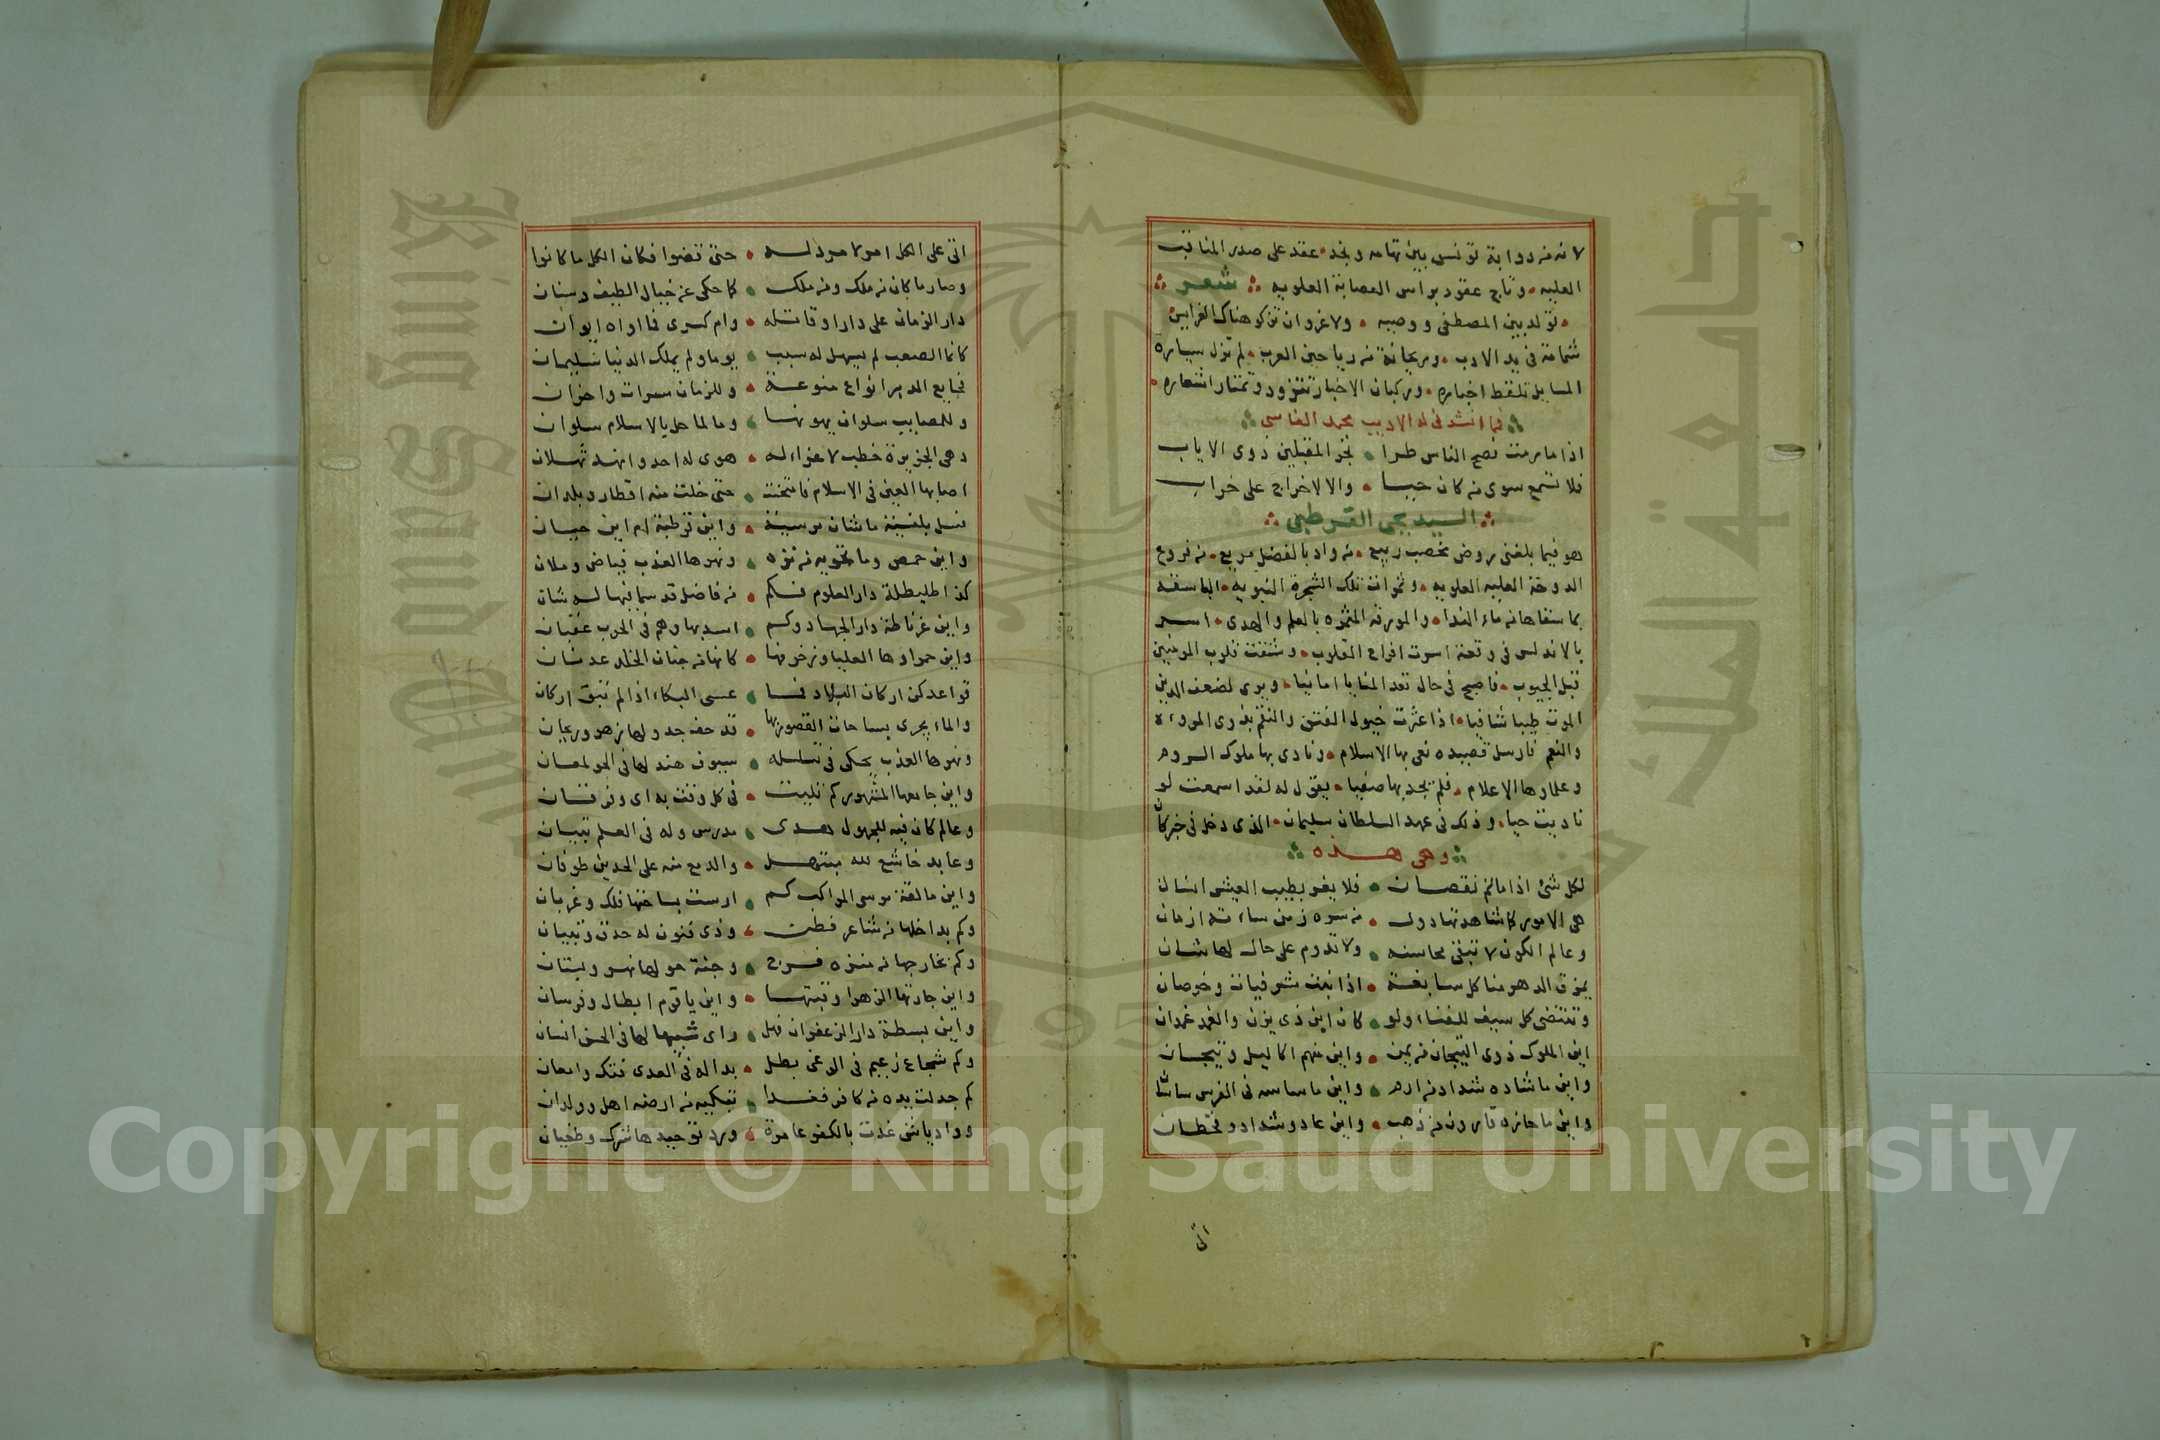 لانه من دوابة تونس بين تهامه ونجد عقد على صدر المناقب
العليه وتاج عقود براس العصابة العلويه شعر
تولد بين المصطفى ووصيه ولا غرو ان تزكو هناك الغرايس
شمامة في يد الادب وريحانة من رياحين العرب لم تزل سيارة
المسايل تلتقط اخباره وركبان الاخبار تتزود وتمتار اشعاره
فما انشدني له الاديب محمد الفاسي
اذا ما رمت نصح الناس طرا نجز المقبلين ذوي الاياب
فلا تسمع سوى من كان حيا والا لاخراج على خراب
السيد يحيى القرطبي
هو فيما بلغني روض خصب ربيع من واد بالفضل مريع من فروع
الدوحة العليه العلويه وثمرات تلك الشجرة النبويه الباسقه
بما سقاها من ماء الندا والمورقه المثمره بالعلم والهدى اسر
بالاندلس في وقعة اسرت افراح القلوب وشققت قلوب المومنين
قبل الجيوب فاصبح في حال تعد المنايا امانيا ويرى لضعف الدين
الموت طبيبا شافيا اذا عثرت خيول الفتن والنقم بذوي المروءه
والنعم فارسل قصيده نعى بها الاسلام ونادى بها ملوك الروم
وعلماوها الاعلام فلم يجد بها صفيا يقول له لقد اسمعت لو
ناديت حيا وذلك في عهد السلطان سليمان الذي دخل في خبر كان
وهي هذه
لكل شئ اذا ما تم نقصان فلا يغر بطيب العيش انسان
هي الامور كما شاهدتها دول من سره زمن ساءته ازمان
وعالم الكون لا تبقى محاسنه ولا تدوم على حال لها شان
يمزق الدهر منا كل سابغة اذا نبت مشرفيات وخرصان
وتنتضي كل سيف للفناء ولو كان ابن ذي يزن والغمد غمدان
اين الملوك ذوي التيجان من يمن واين منهم اكاليل وتيجان
واين ما شاده شداد من ارم واين ما ساسه في الفرس ساسان
واين ما حازه قارون من ذهب واين عاد وشداد وقحطان
اتى
اتى على الكل امر لا مرد له حتى قضوا فكان الكل ما كانوا
وصار ما كان من ملك ومن ملك كما حكى عن خيال الطيف وسنان
دار الزمان على دارا وقاتله وام كسرى فما اواه ايوان
كانما الصعب لم يسهل له سبب يوما ولم يملك الدنيا سليمان
فجايع الدهر انواع منوعة وللزمان مسرات واحزان
وللمصايب سلوان يهونها وما لما حل بالاسلام سلوان
دهى الجزيرة خطب لا عزاء له هوى له احد وانهد ثهلان
اصابها العين في الاسلام فامتحنت حتى خلت منه اقطار وبلدان
فسل بلنسية ما شان مرسية واين قرطبة ام اين جيان
واين حمص وما تحويه من نزه ونهرها العذب فياض وملان
كذا طليطلة دار العلوم فكم من فاضل قد سما فيها له شان
واين غرناطة دار الجهاد وكم اسد بها وهم في الحرب عقبان
واين حمراوها العليا وزخرفها كانها من جنان الخلد عدنان
قواعد كن اركان البلاد فما عسى البكاء اذا لم تبق اركان
والماء يجري بساحات القصور بها قد حف جدولها زهر وريحان
ونهرها العذب يحكي في تسلسله سيوف هند لها في الجو لمعان
واين جامعها المشهور كم تليت في كل وقت به اي وفرقان
وعالم كان فيه للجهول هدى مدرس وله في العلم تبيان
وعابد خاشع لله مبتهل والدمع منه على الخدين طوفان
واين مالقة مرسى المراكب كم ارست بساحتها فلك وغربان
وكم بداخلها من شاعر فطن وذي فنون له حذق وتبيان
وكم بخارجها من منزه فرج وجنة حولها نهر وبستان
واين جارتها الزهرا وقبتها واين يا قوم ابطال وفرسان
واين بسطة دار الزعفران فهل راى شبيها لها في الحسن انسان
وكم شجاع زعيم في الوغى بطل بدا له في العدى فتك وامعان
كم جدلت يده من كافر فغدا تبكيه من ارضه اهل وولدان
وواديا شى غدت بالكفر عامرة ورد توحيدها شرك وطغيان
Copyright © King Saud University
King Saud University
1957